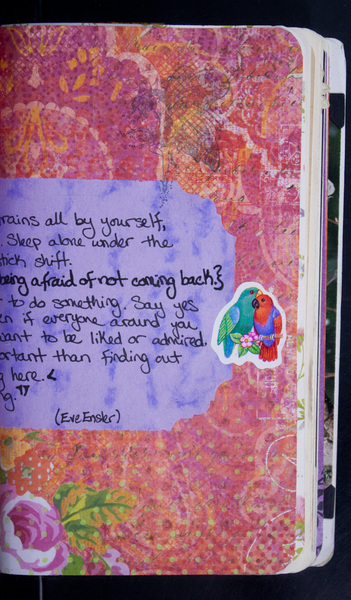 rains all by yourself,
. Sleep alone under the
tick shift.
being afraid of not coming back.}
- to do something. Say yes
en if everyone around you
want to be liked or admired.
ortant than finding out
g here.
ng."
(Eve Ensler)